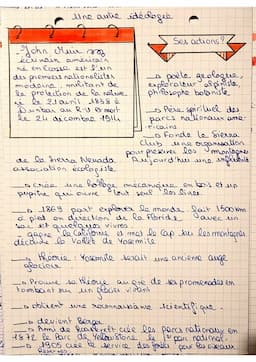 Une autre idéologie
John Muir
écrivain américain
né en Ecosse est l'un
des premiers naturalistes
moderne, militant de
la protection de la nature
né le 21 avril 1838 à
Dunbar au R.U et mort
le 24 décembre 1914
Ses actions?
→ poète, géologue,
explorateur, alpiniste,
philosophe botaniste,
→ Père spirituel des
parcs nationaux amé-
ricains
→ Fonde le Sierra
Club une organisation
pour préserver les montagnes
de la Sierra Nevada. Aujourd'hui une
association écologiste
→ Crée une horloge mécanique en bois et un
pupitre qui ouvre tout seul les livres.
→ 1867 part explorer le monde, fait 1500 km
à pied en direction de la Floride avec un
sac et quelques vivres
gagne la Californie et met le cap sur les montagnes
la Vallée de Yosemite
→ théorie: Yosemite serait une ancienne
glaciaire
→ Prouve sa théorie au gré de ses promenades en
tombant sur un glacier vivant
→ obtient une reconnaissance scientifique.
→ devient berger
→ crée les parcs nationaux en
1872 le Parc de Yellowstone le 1er parc national
→ 1905 crée le service des forêts pour les